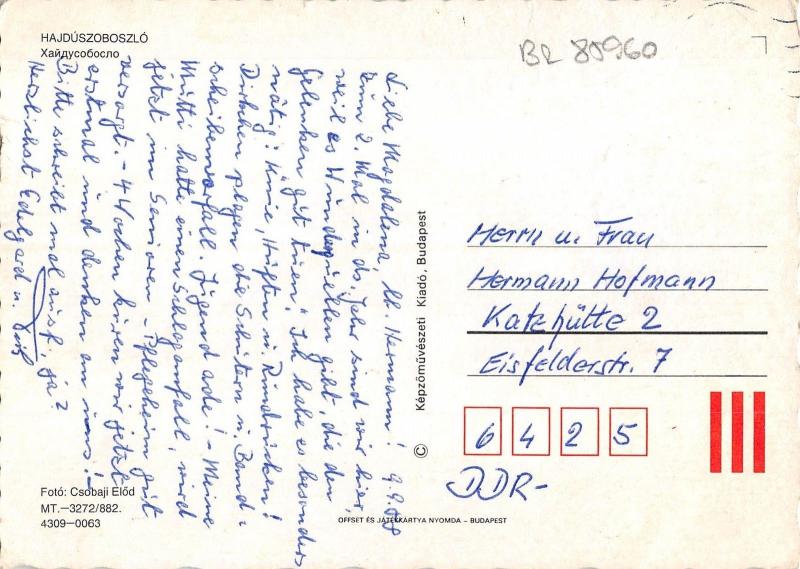 HAJDÚSZOBOSZLÓ
Хайдусобосло
BR 80960
Liebe Magdalena, lb. Hermann! 9.9.88
Zum 2. Mal in ds. Jahr sind wir hier,
weil es Wunderquellen gibt, die den
Gelenken gut tuen. Ich habe es besonders
nötig! Knie, Hüften u.
Dirlchen plagen die Schultern u. Band-
scheibenvorfall. Jugend ade! - Meine
Mutti hatte einen Schlaganfall, wird
jetzt im Senioren-Pflegeheim gut
versorgt. - 4 Wochen kuren wir jetzt
erstmal und denken an uns!
Bitte schreibt mal aus
 ja?
Herzlichst Edelgard u.
Képzőművészeti Kiadó, Budapest
©
Herrn u. Frau
Hermann Hofmann
Katzhütte 2
Eisfelderstr. 7
6 4 2 5
DDR-
Fotó: Csobaji Előd
MT.–3272/882.
4309–0063
OFFSET ÉS JÁTÉKKÁRTYA NYOMDA – BUDAPEST